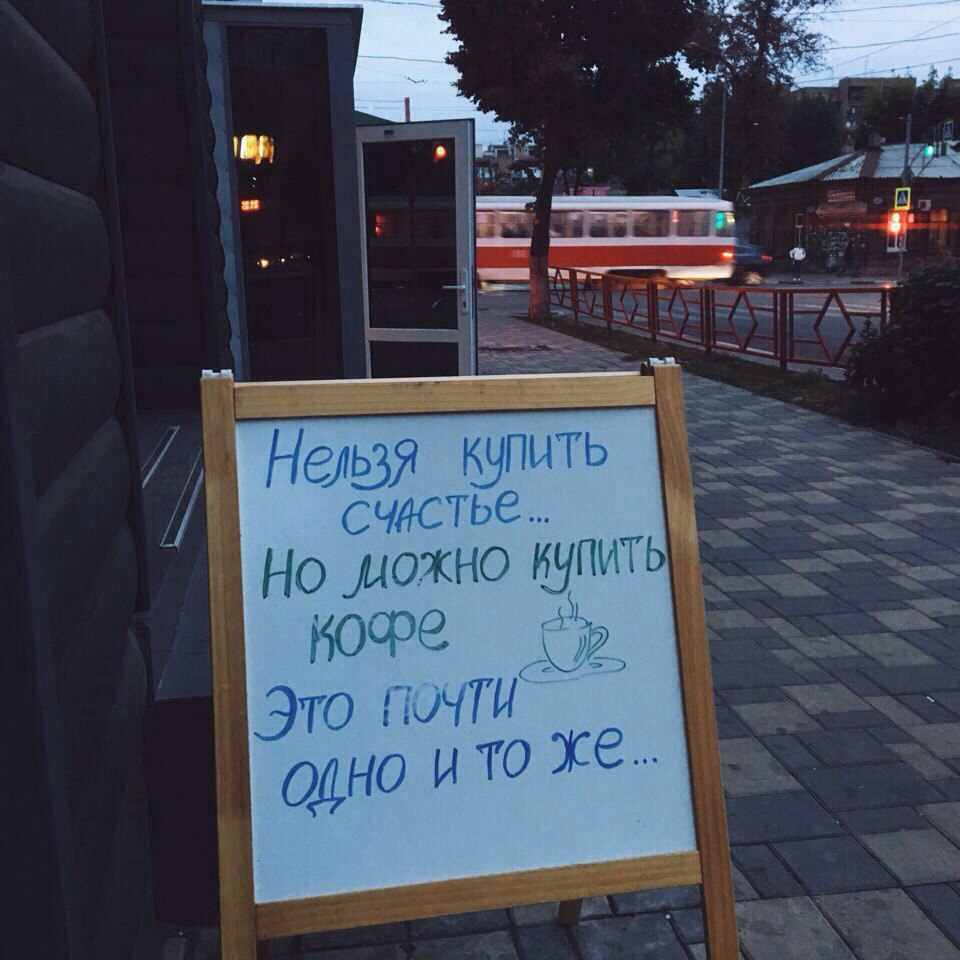 Нельзя купить
счастье...
Но можно купить
кофе
Это почти
одно и то же...